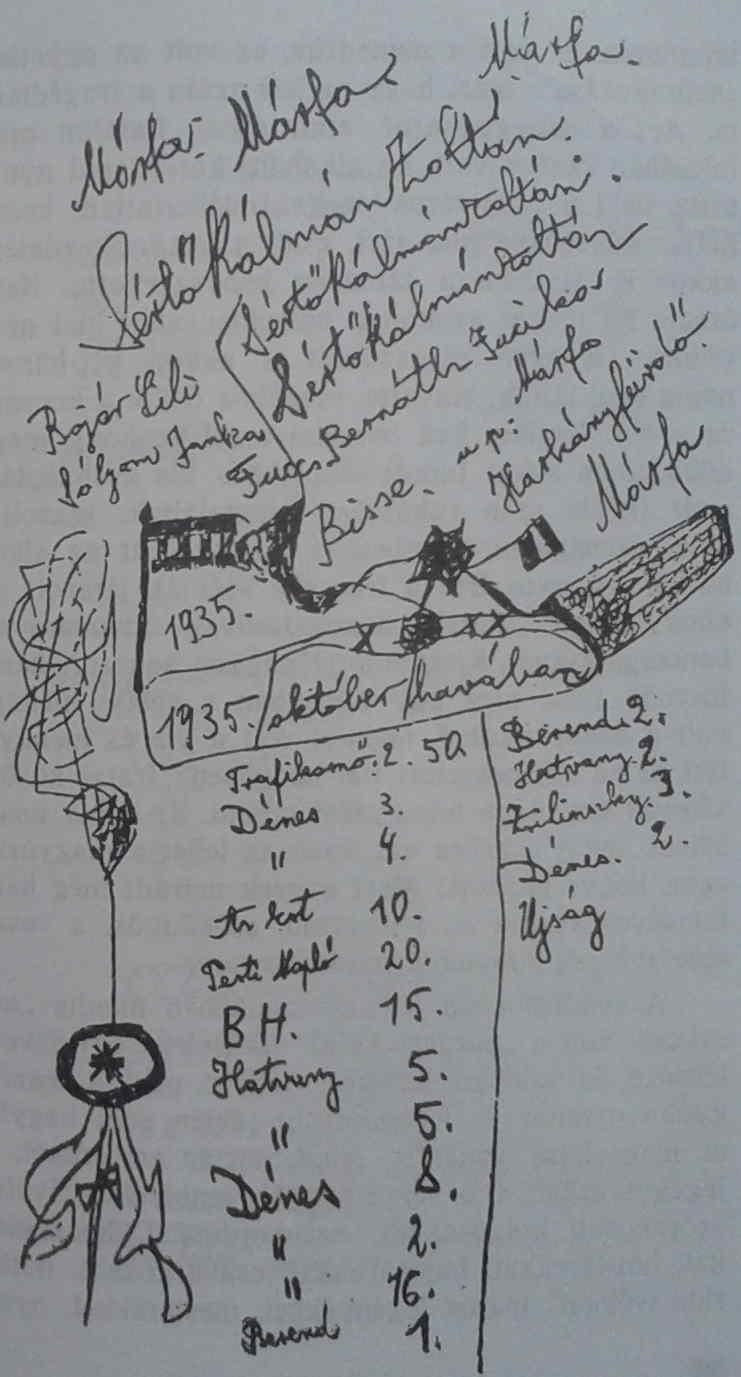 Márfa.
Márfa Márfa
Sértő" Kálmán Zoltán.
Sértő" Kálmán Zoltán.
Sértő" Kálmán Zoltán
Bojár Lili
Sólyom Janka
Fuccs. Bernáth Jucika
Bisse. u. p. Márfa
Harkányfürdő."
Márfa
1935.
1935. október havában
Trafiksmő. 2. 50
Dénes 3.
" 4.
Az Est 10.
Pesti Napló 20.
B H. 15.
Hatvany 5.
" 5.
Dénes 8.
" 2.
" 16.
Berend 1.
Berend. 2.
Hatvany. 2.
Zsilinszky. 3.
Dénes. 2.
Ujság